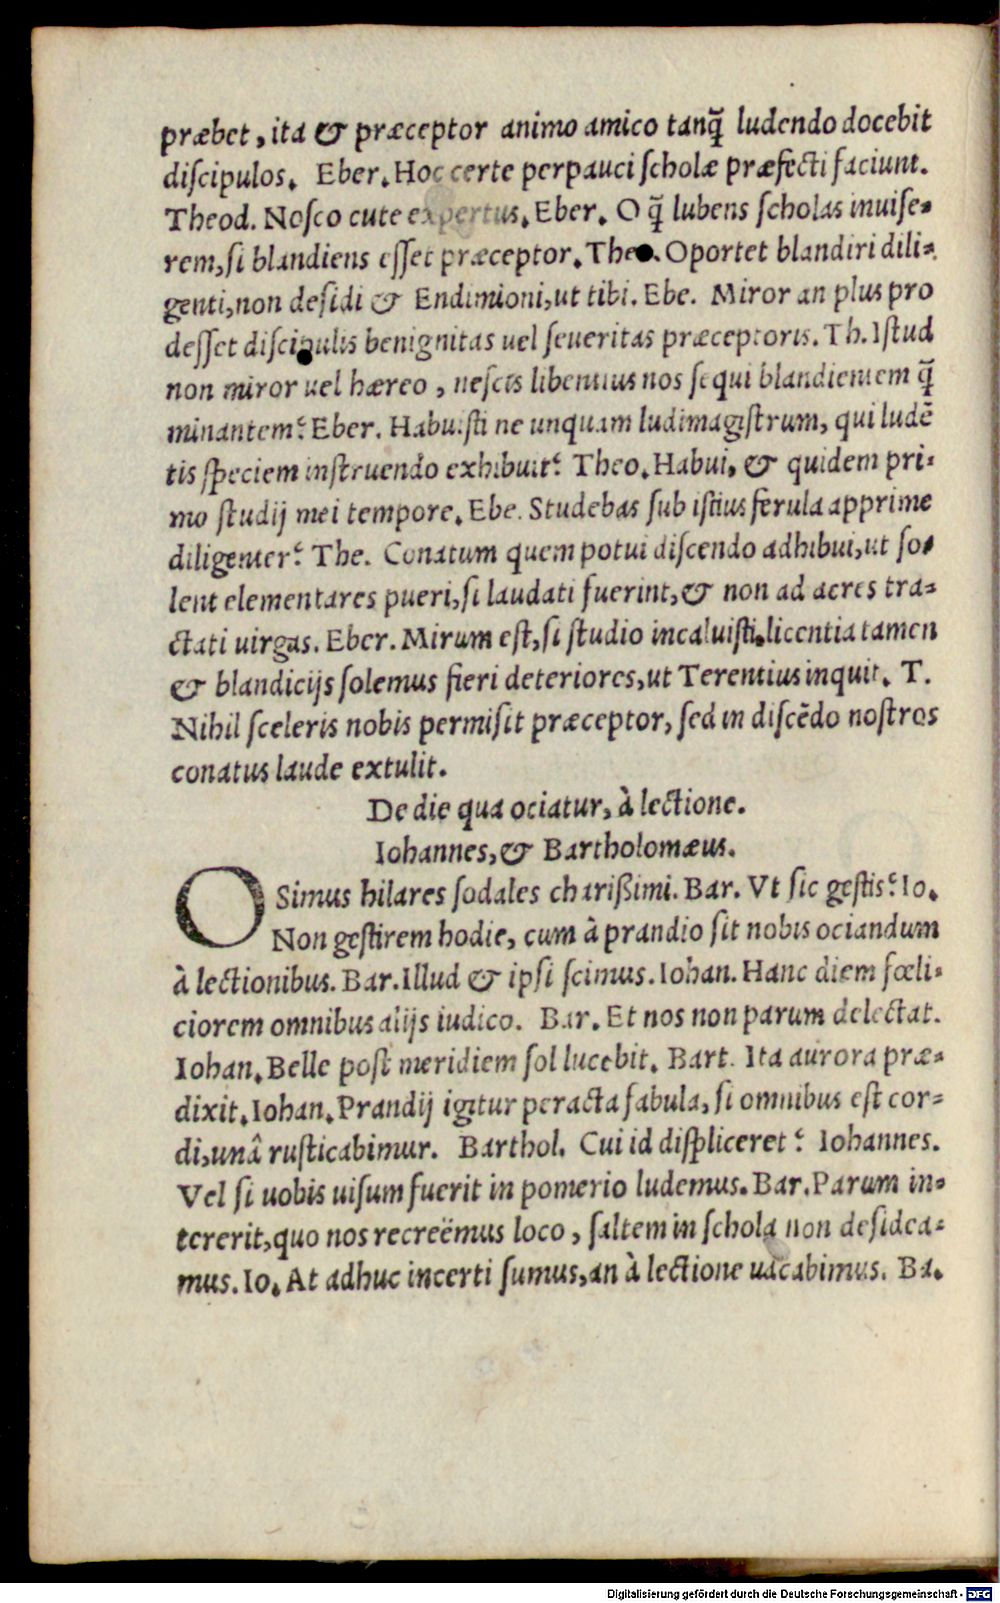 præbet, ita & præceptor animo amico tanq̃ ludendo docebit
diſcipulos. Eber. Hoc certe perpauci ſcholæ præfecti faciunt.
Theod. Noſco cute expertus. Eber. O q̃ lubens ſcholas inuiſe-
rem, ſi blandiens eſſet præceptor. Theo. Oportet blandiri dili-
genti, non deſidi & Endimioni, ut tibi. Ebe. Miror an plus pro
deſſet diſcipulis benignitas uel ſeueritas præceptoris. Th. Iſtud
non miror uel hæreo, neſcis libentius nos ſequi blandientem q̃
minantem? Eber. Habuiſti ne unquam ludimagiſtrum, qui ludẽ
tis ſpeciem inſtruendo exhibuit? Theo. Habui, & quidem pri-
mo ſtudij mei tempore. Ebe. Studebas ſub iſtius ferula apprime
diligenter? The. Conatum quem potui diſcendo adhibui, ut ſo-
lent elementares pueri, ſi laudati fuerint, & non ad acres tra-
ctati uirgas. Eber. Mirum eſt, ſi ſtudio incaluiſti, licentia tamen
& blandicijs ſolemus fieri deteriores, ut Terentius inquit. T.
Nihil ſceleris nobis permiſit præceptor, ſed in diſcẽdo noſtros
conatus laude extulit.
De die qua ociatur, à lectione.
Iohannes, & Bartholomæus.
OSimus hilares ſodales charißimi. Bar. Vt ſic geſtis? Io.
Non geſtirem hodie, cum à prandio ſit nobis ociandum
à lectionibus. Bar. Illud & ipſi ſcimus. Iohan. Hanc diem fœli-
ciorem omnibus alijs iudico. Bar. Et nos non parum delectat.
Iohan. Belle poſt meridiem ſol lucebit. Bart. Ita aurora præ-
dixit. Iohan. Prandij igitur peracta fabula, ſi omnibus eſt cor-
di, unâ ruſticabimur. Barthol. Cui id diſpliceret? Iohannes.
Vel ſi uobis uiſum fuerit in pomerio ludemus. Bar. Parum in-
tererit, quo nos recreëmus loco, ſaltem in ſchola non deſidea-
mus. Io. At adhuc incerti ſumus, an à lectione uacabimus. Ba.
Digitalisierung gefördert durch die Deutsche Forschungsgemeinschaft - DFG